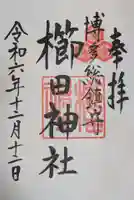 奉拝
博多総鎮守
櫛田神社
令和六年十二月十二日